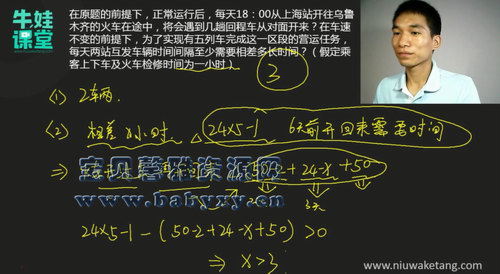 牛娃
课堂
在原题的前提下，正常运行后，每天18：00从上海站开往乌鲁
木齐的火车在途中，将会遇到几趟回程车从对面开来？在车速
不变的前提下，为了实现有五列车完成这一区段的营运任务，
每天两站互发车辆时间间隔至少需要相差多长时间？（假定乘
客上下车及火车检修时间为一小时）。
3
(1) 2车两
(2) 相差 小时.
24×5-1 6天前开回来需要时间
宝贝馨雅课源网
⇒ 50-2+24-x+50
www.babyxy.com
3天
24×5-1-(50-2+24-x+50)>0
⇒ x>3
www.niuwaketang.com